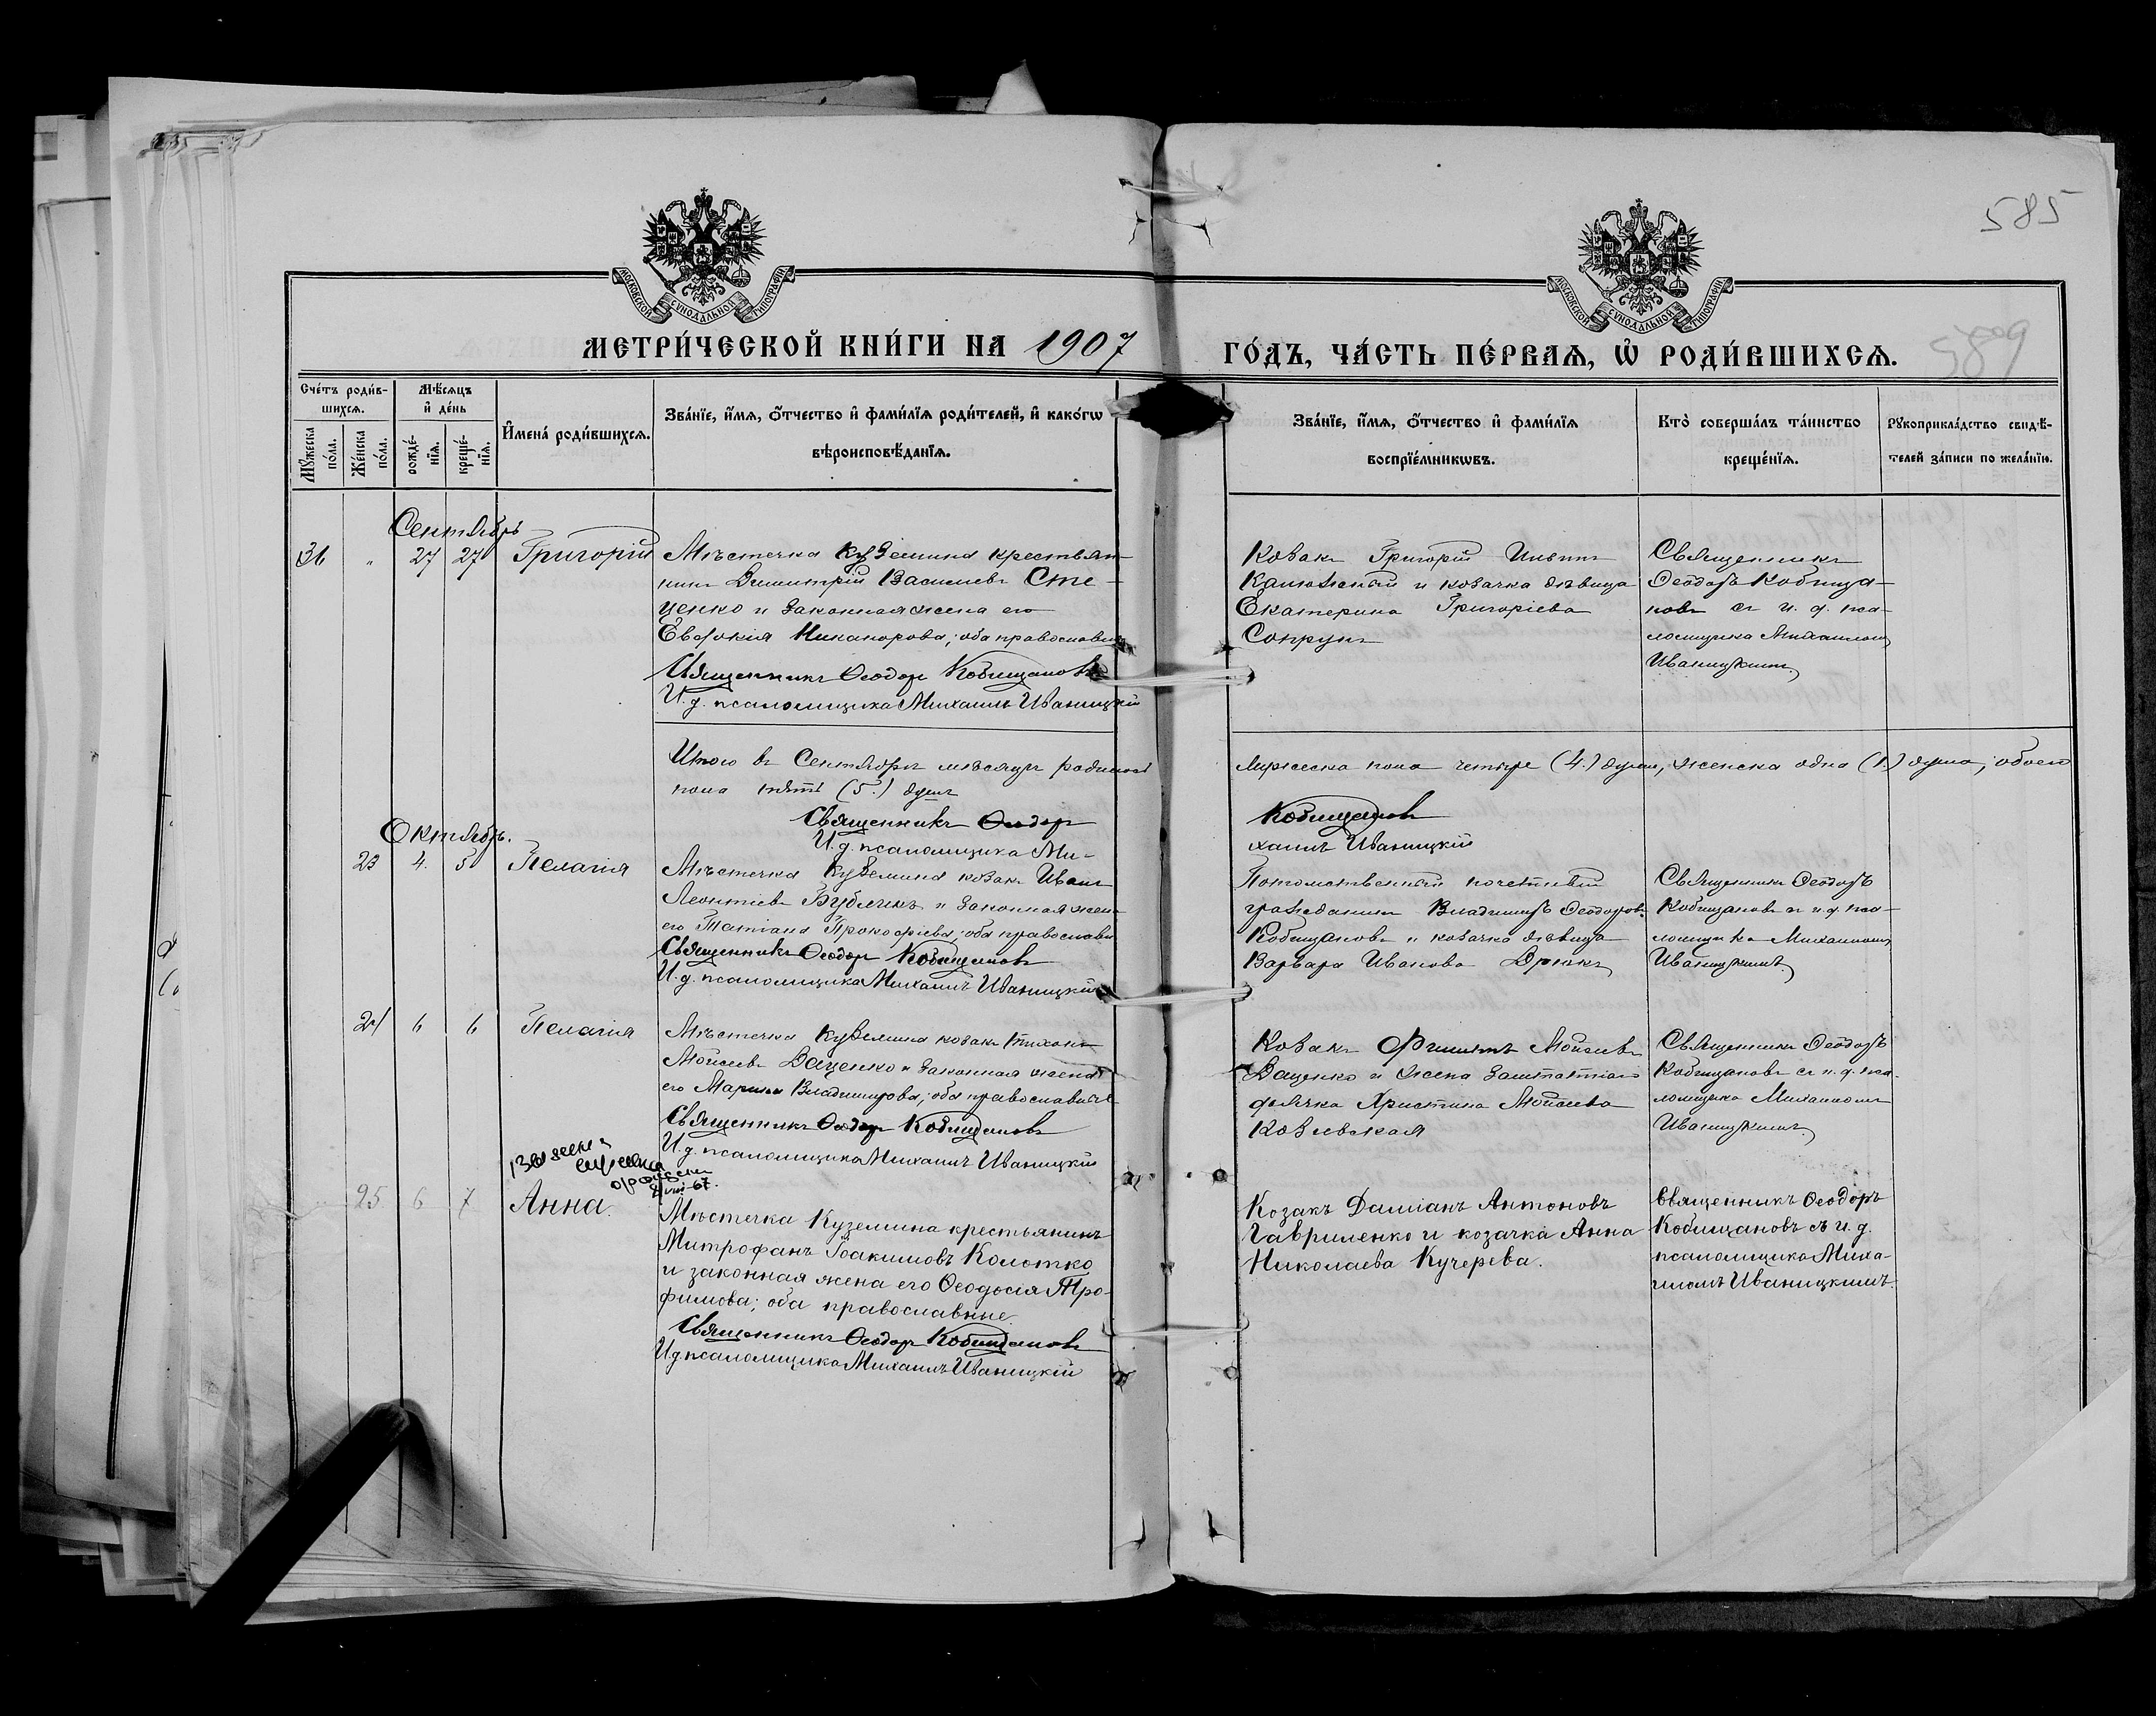 585
МОСКОВСКОЙ СѴНОДАЛЬНОЙ ТИПОГРАФІИ
МОСКОВСКОЙ СѴНОДАЛЬНОЙ ТИПОГРАФІИ
МЕТРИ́ЧЕСКОЙ КНИ́ГИ НА 1907
ГО́ДЪ, ЧА́СТЬ ПЕ́РВАѦ, Ѽ РОДИ́ВШИХСѦ.
589
Сче́тъ роди́в-
шихсѧ.
Мꙋ́жеска по́ла.
Же́нска по́ла.
Мѣ́сѧцъ
и҆ де́нь
рожде́-
нїѧ.
креще́-
нїѧ.
И҆мена̀ роди́вшихсѧ.
Зва́нїе, и҆́мѧ, ѻ҆́тчество и҆ фами́лїѧ роди́телей, и҆ како́гѡ
вѣроисповѣ́данїѧ.
Зва́нїе, и҆́мѧ, ѻ҆́тчество и҆ фами́лїѧ
воспрїе́мникѡвъ.
Кто̀ соверша́лъ та́инство
креще́нїѧ.
Рꙋкоприкла́дство свидѣ́-
телей за́писи по жела́нїю.
Сентябрь
31 " 27 27 Григорій
Мѣстечка Куземина крестьян-
инъ Димитрій Василіевъ Сте-
ценко и законная жена его
Евфокія Никанорова; оба православные
Священникъ Ѳеодоръ Кобищановъ
И.д. псаломщика Михаилъ Иваницкій
Козакъ Григорій
и козачка дѣвица
Екатерина Григоріева
Сопрунъ
Священникъ
Ѳеодоръ Кобища-
новъ съ и. д. пса-
ломщика Михаиломъ
Иваницкимъ
Итого въ Сентябрѣ мѣсяцѣ родилось
мужеска пола четыре (4.) души, женска одна (1.) душа, обоего
пола пять (5.) душъ
Священникъ Ѳеодоръ
Кобищановъ
И.д. псаломщика Ми-
хаилъ Иваницкій
Октябрь.
23 4. 5 Пелагія
Мѣстечка Куземина козакъ Иванъ
Леонтіевъ Бубликъ и законная жена
его Татіана Прокофіева; оба православн
Священникъ Ѳеодоръ Кобищановъ
И.д. псаломщика Михаилъ Иваницкій
Потомственный почетный
гражданинъ Владимиръ Ѳеодоровъ
Кобищановъ и козачка дѣвица
Варвара Иванова Дрюкъ
Священникъ Ѳеодоръ
Кобищановъ съ и.д. пса-
ломщика Михаиломъ
Иваницкимъ.
24 6 6 Пелагія
Мѣстечка Куземина козакъ Тихонъ
Мойсеевъ Даценко и законная жена
его Марина Владимирова; оба православные
Священникъ Ѳеодоръ Кобищановъ
И.д. псаломщика Михаилъ Иваницкій
Козакъ Филиппъ Мойсеевъ
Даценко и жена заштатнаго
дьячка Христина Мойсеева
Козіевская
Священникъ Ѳеодоръ
Кобищановъ съ и.д. пса-
ломщика Михаиломъ
Иваницкимъ.
25 6 7 Анна.
Мѣстечка Куземина крестьянинъ
Митрофанъ Іоакимовъ Колотко
и законная жена его Ѳеодосія Тро-
фимова; оба православные.
Священникъ Ѳеодоръ Кобищановъ
И.д псаломщика Михаилъ Иваницкій
Козакъ Даміанъ Антоновъ
Гавриленко и козачка Анна
Николаева Кучерева.
Священникъ Ѳеодоръ
Кобищановъ съ и. д.
псаломщика Миха-
иломъ Иваницкимъ.